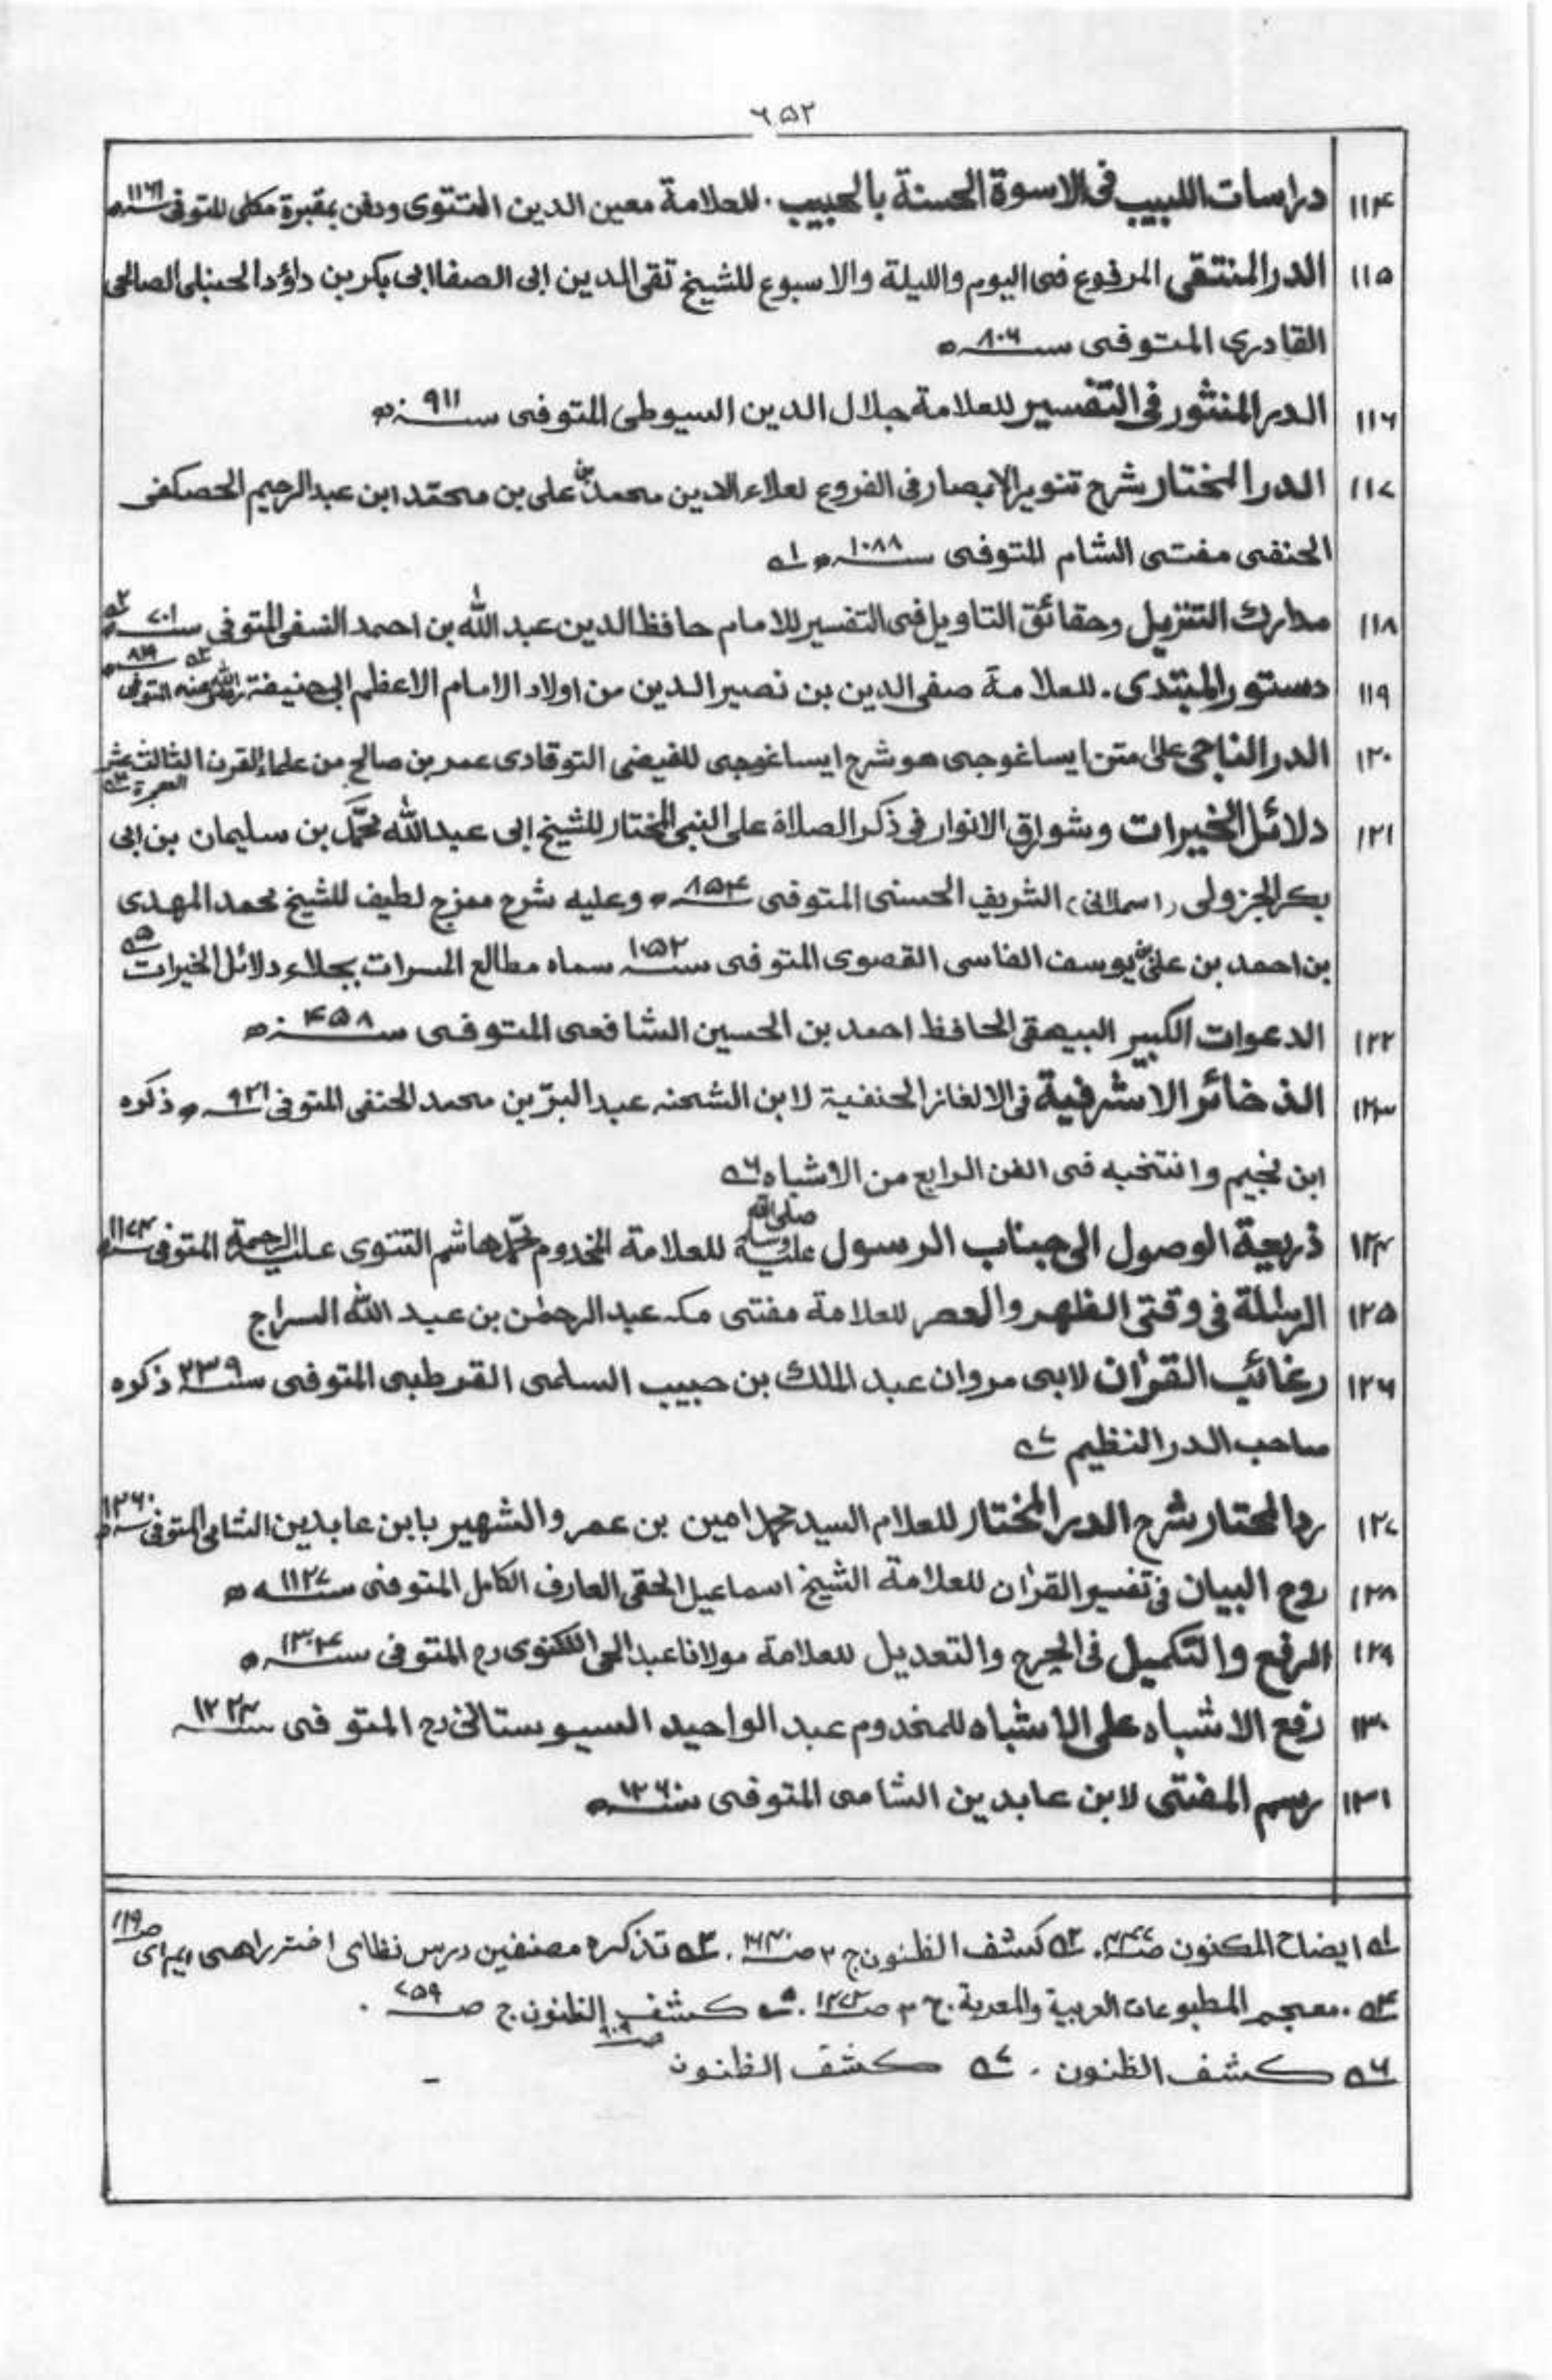 ٦٥٢
١١٤ دراسات اللبيب فی الاسوة الحسنة بالحبيب . للعلامة معين الدين التتوی ودفن بمقبرة مکلی المتوفی سنه ١١٦١ ه
١١٥ الدر المنتقی المرفوع فی اليوم والليلة والاسبوع للشيخ تقی الدين ابی الصفا ابی بکر بن داؤد الحنبلی الصالحی
القادری المتوفی سنه ٨٠٦ ه
١١٦ الدر المنثور فی التفسير للعلامة جلال الدين السيوطی المتوفی سنه ٩١١ ه
١١٧ الدر المختار شرح تنوير الابصار فی الفروع لعلاء الدين محمد بن علی بن محمد ابن عبد الرحيم الحصکفی
الحنفی مفتی الشام المتوفی سنه ١٠٨٨ ه ١ه
١١٨ مدارك التنزيل وحقائق التاويل فی التفسير للامام حافظ الدين عبد الله بن احمد النسفی المتوفی سنه ٧٠١ ه ٢ه
١١٩ دستور المبتدی . للعلامة صفی الدين بن نصير الدين من اولاد الامام الاعظم ابی حنيفة رضی الله عنه المتوفی سنه ٨١٩ ه ٣ه
١٢٠ الدر الناجی علی متن ايساغوجی هو شرح ايساغوجی للفيضی التوقادی عمر بن صالح من علماء القرن الثالث عشر الهجرة ٤ه
١٢١ دلائل الخيرات وشوارق الانوار فی ذکر الصلاة علی النبی المختار للشيخ ابی عبد الله محمد بن سليمان بن ابی
بکر الجزولی (السملالی) الشريف الحسنی المتوفی سنه ٨٥٤ ه وعليه شرح ممزج لطيف للشيخ محمد المهدی
بن احمد بن علی بن يوسف الفاسی القصوی المتوفی سنه ١٠٥٢ سماه مطالع المسرات بجلاء دلائل الخيرات ٥ه
١٢٢ الدعوات الکبير البيهقی الحافظ احمد بن الحسين الشافعی المتوفی سنه ٤٥٨ ه
١٢٣ الذخائر الاشرفية فی الالغاز الحنفية لابن الشحنه عبد البرّ بن محمد الحنفی المتوفی سنه ٩٢١ ه ذکره
ابن نجيم وانتخبه فی الفن الرابع من الاشباه ٦ه
١٢٤ ذريعة الوصول الی جناب الرسول صلی الله عليه وسلم للعلامة المخدوم محمد هاشم التتوی عليه الرحمة المتوفی سنه ١١٧٤ ه
١٢٥ الرسالة فی وقتی الظهر والعصر للعلامة مفتی مکه عبد الرحمٰن بن عبد الله السراج
١٢٦ رغائب القرآن لابی مروان عبد الملك بن حبيب السلمی القرطبی المتوفی سنه ٢٣٩ ذکره
صاحب الدر النظيم ٧ه
١٢٧ رد المحتار شرح الدر المختار للعلام السيد محمد امين بن عمر والشهير بابن عابدين الشامی المتوفی سنه ١٢٦٠ ه
١٢٨ روح البيان فی تفسير القرآن للعلامة الشيخ اسماعيل الحقی العارف الکامل المتوفی سنه ١١٢٧ ه
١٢٩ الرفع والتکميل فی الجرح والتعديل للعلامة مولانا عبد الحی اللکنوی رح المتوفی سنه ١٣٠٤ ه
١٣٠ رفع الاشباه علی الاشباه للمخدوم عبد الواحيد السيوستانی رح المتوفی سنه ١٢٢٤
١٣١ رسم المفتی لابن عابدين الشامی المتوفی سنه ١٢٦٠ ه
١ه ايضاح المکنون . ٢ه کشف الظنون ج ٢ . ٣ه تذکره مصنفين درس نظامی اختر راهی ايم ای ص ١١٩
٤ه . معجم المطبوعات العربية والمعربة . ج ٣ ص . ٥ه کشف الظنون ج ص ٧٥٩ .
٦ه کشف الظنون . ٧ه کشف الظنون ص ٩٠٩